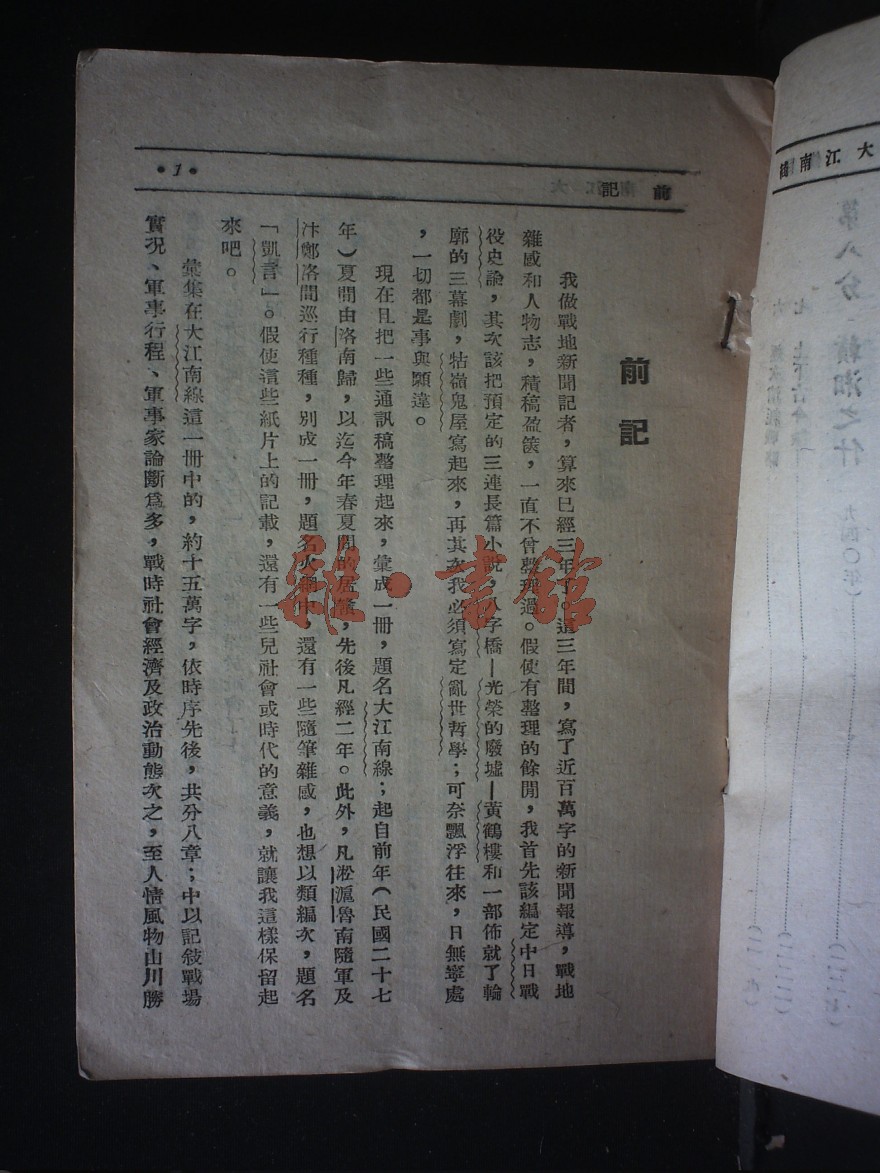 大江南線
第八分 贛湘之什
九四〇年)
前記
•1•
前記
我做戰地新聞記者,算來已經三年了,這三年間,寫了近百萬字的新聞報導,戰地
雜感和人物志,積稿盈篋,一直不曾整理過。假使有整理的餘閒,我首先該編定中日戰
役史論,其次該把預定的三連長篇小說,八字橋—光榮的廢墟—黃鶴樓和一部佈就了輪
廓的三幕劇,牯嶺鬼屋寫起來,再其次我必須寫定亂世哲學;可奈飄浮往來,日無寧處
,一切都是事與願違。
現在且把一些通訊稿整理起來,彙成一冊,題名大江南線;起自前年(民國二十七
年)夏間由洛南歸,以迄今年春夏間的居贛,先後凡經二年。此外,凡淞滬魯南隨軍及
汴鄭洛間巡行種種,別成一冊,題名火網中,還有一些隨筆雜感,也想以類編次,題名
「凱言」。假使這些紙片上的記載,還有一些兒社會或時代的意義,就讓我這樣保留起
來吧。
彙集在大江南線這一冊中的,約十五萬字,依時序先後,共分八章;中以記敍戰場
實況、軍事行程、軍事家論斷爲多,戰時社會經濟及政治動態次之,至人情風物山川勝
雜·書館